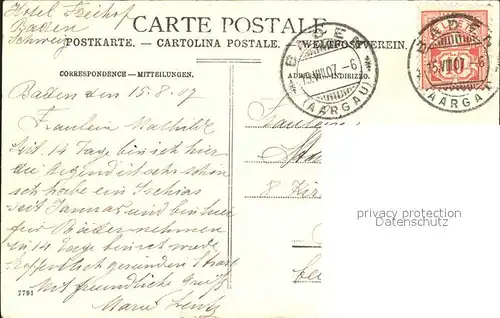 Hotel Freihof
Baden
Schweiz
CARTE POSTALE
POSTKARTE. — CARTOLINA POSTALE. — WELTPOSTVEREIN.
CORRESPONDENCE — MITTEILUNGEN.
BADEN
15.VIII.07.-6
(AARGAU)
BADEN
15.VIII.07.-6
(AARGAU)
Baden den 15-8-07
Fräulein Mathilde
Seit 14 Tage bin ich hier
die Gegend ist sehr schön
ich habe ein Ischias
seit Januar und bin hier
für Bäder nehmen
in 14 Tage bin ich wieder
hoffentlich gesund in
Mit freundliche Grüße
Marie Lentz
8
7791
privacy protection
watermark